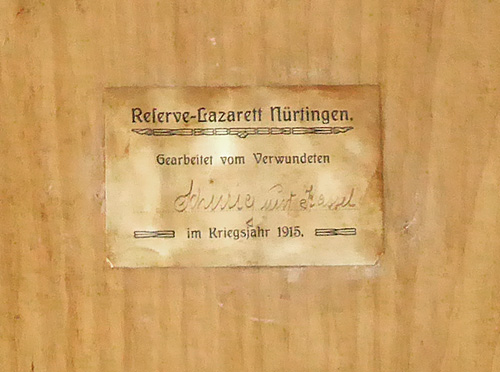 Reserve-Lazarett Nürtingen.
Gearbeitet vom Verwundeten
im Kriegsjahr 1915.